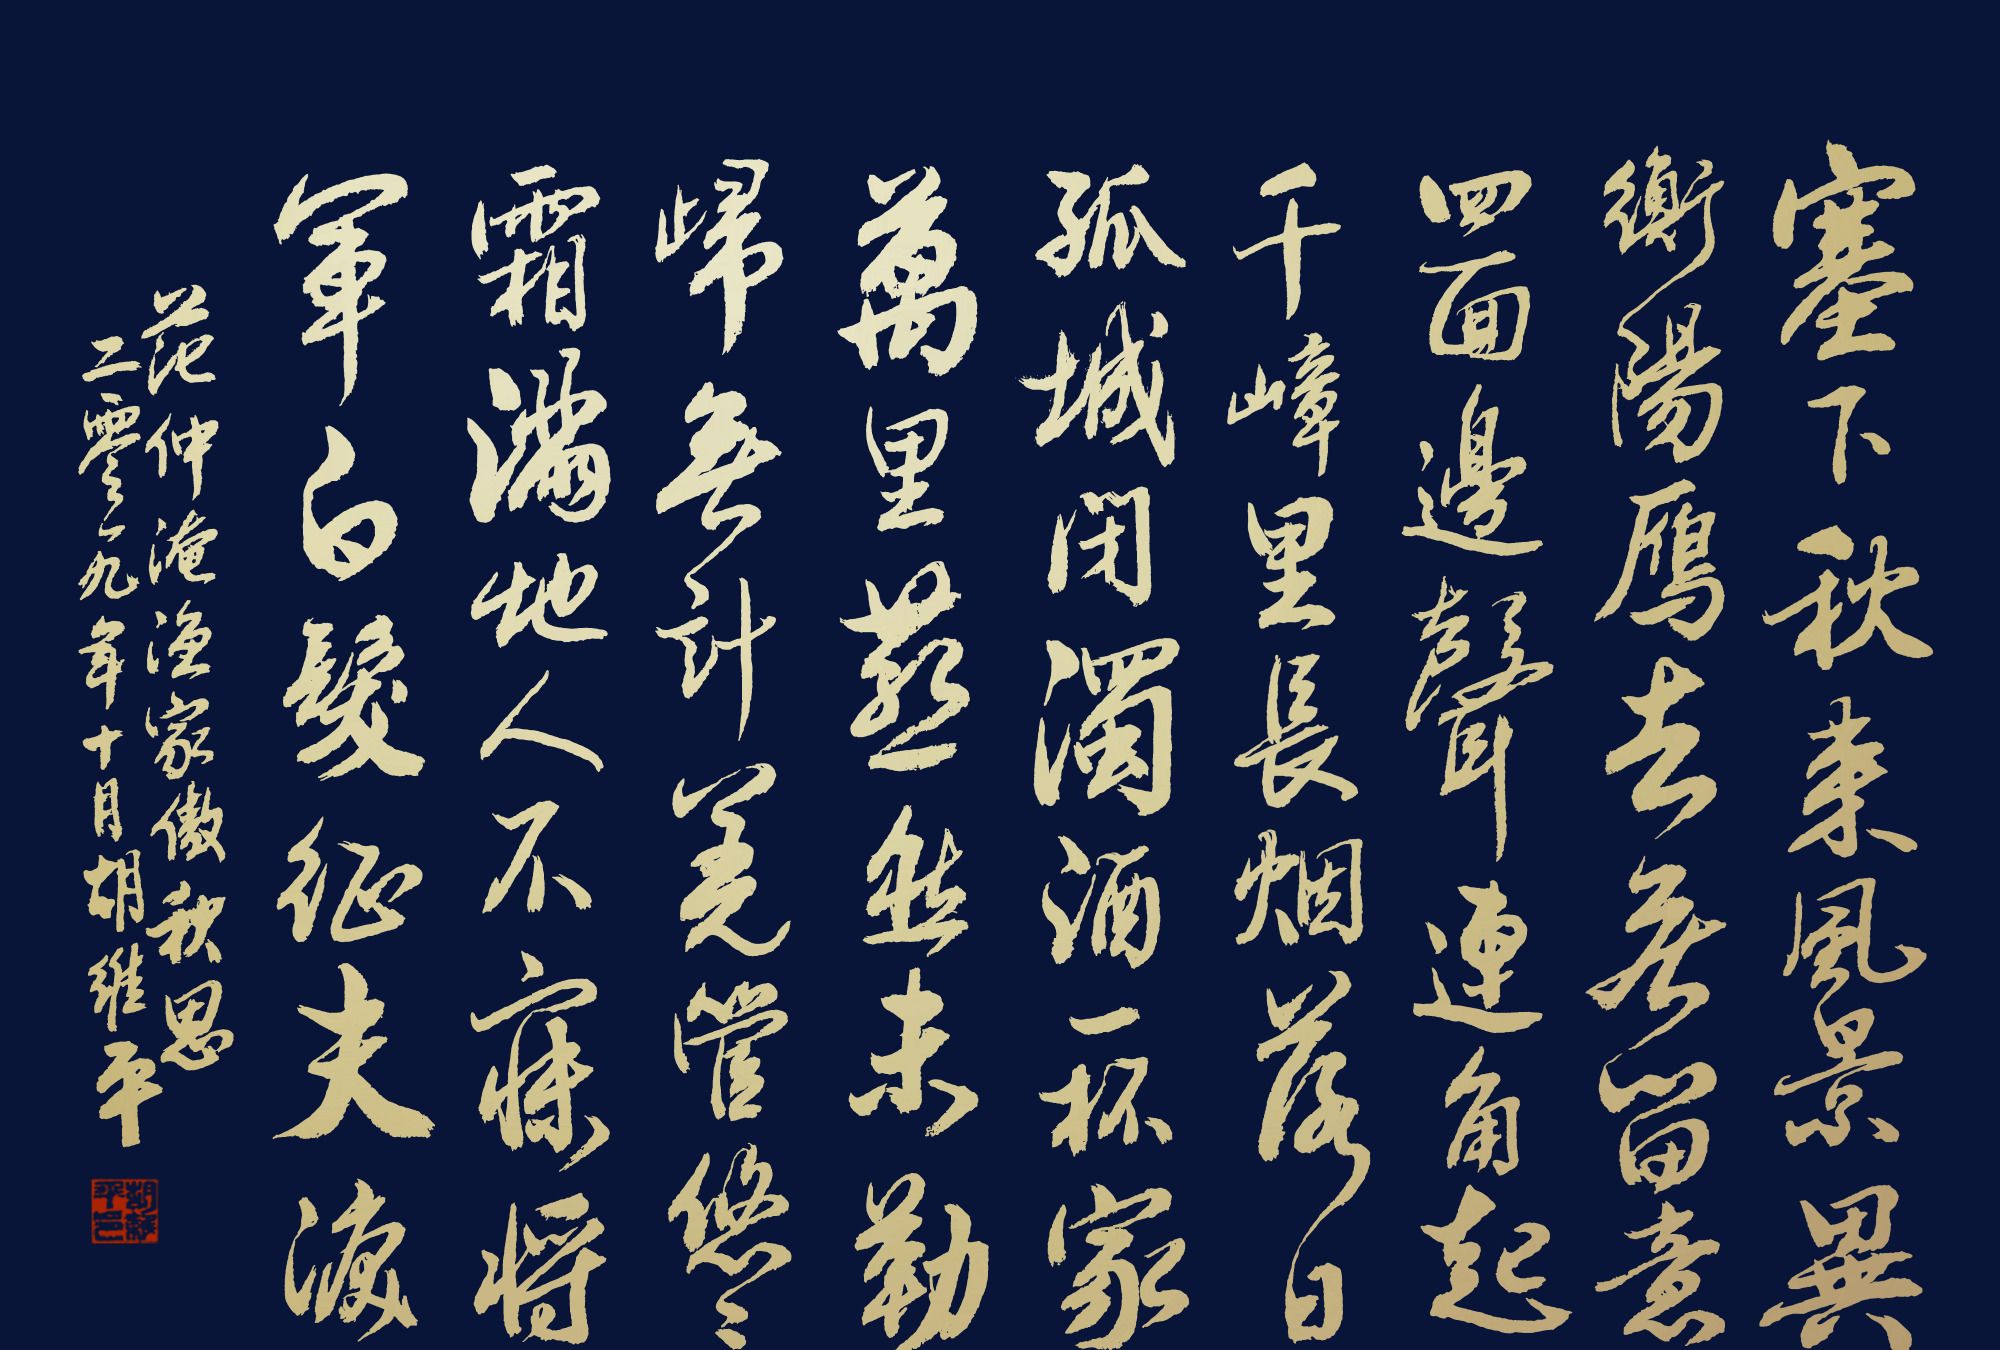 塞下秋来風景異
衡陽鴈去無留意
四面邊聲連角起
千嶂里長烟落日
孤城閉濁酒一杯家
萬里燕然未勒
歸無計羌管悠〻
霜滿地人不寐将
軍白髮征夫淚
范仲淹渔家傲秋思
二零零九年十月胡維平